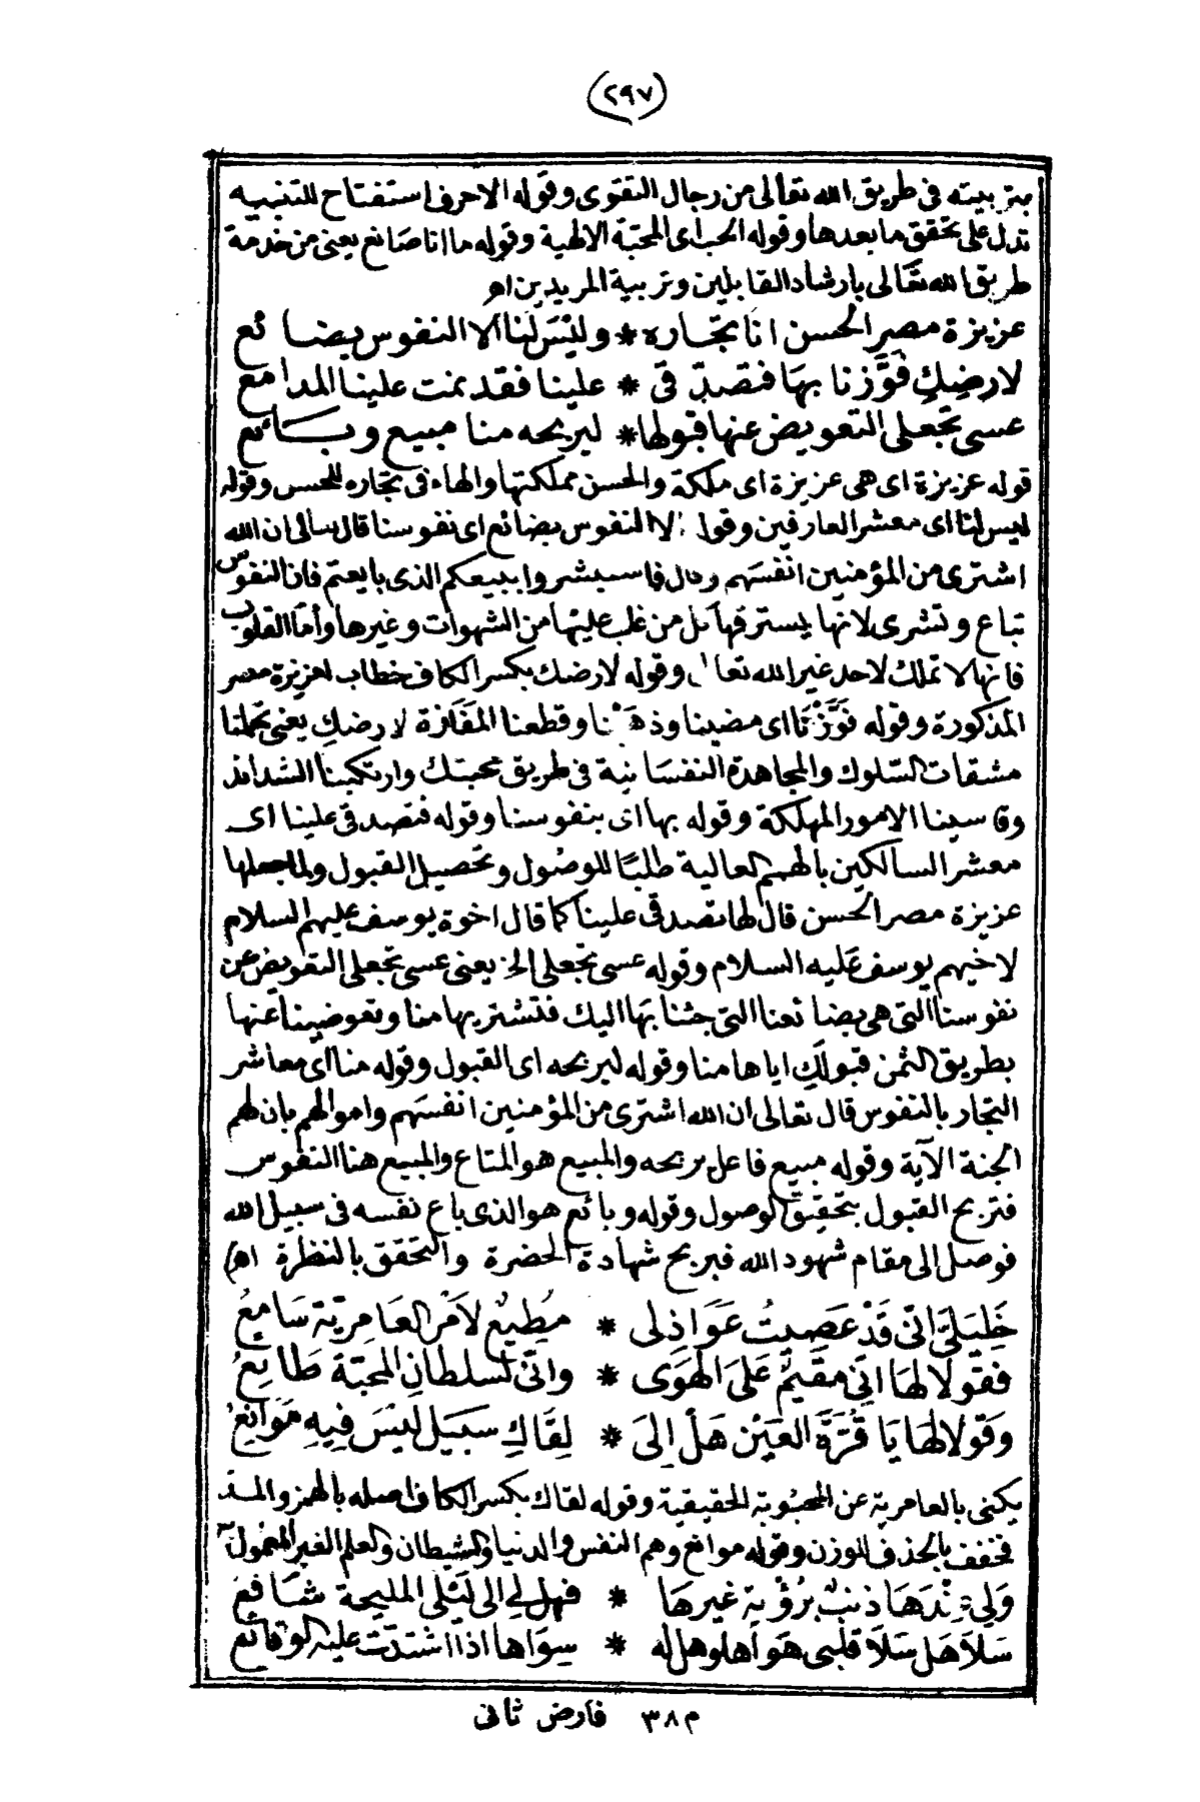 (٢٩٧)
بتربيته فى طريق الله تعالى من رجال التقوى وقوله الاحرف استفتاح للتنبيه
تدل على تحقق ما بعدها وقوله الحب اى المحبة الالهية وقوله ما انا صانع يعنى من خدمة
طريق الله تعالى بارشاد القابلين وتربية المريدين اه
عزيزة مصر الحسن انا تجاره * وليس لنا الا النفوس بضائع
لارضكِ فوَّزنا بها فتصدّقى * علينا فقد نمت علينا المدامع
عسى تجعلى التعويض عنها قبولها * ليربحه منا مبيع وبائع
قوله عزيزة اى هى عزيزة اى ملكة والحسن مملكتها والهاء فى تجاره للحسن وقوله
ليس لنا اى معشر العارفين وقوله الا النفوس بضائع اى نفوسنا قال تعالى ان الله
اشترى من المؤمنين انفسهم وقال فاستبشروا ببيعكم الذى بايعتم فان النفوس
تباع وتشرى لانها يسترقها كل من غلب عليها من الشهوات وغيرها وأمّا القلوب
فانها لا تملك لاحد غير الله تعالى وقوله لارضك بكسر الكاف خطاب لعزيزة مصر
المذكورة وقوله فوَّزْنا اى مضينا وذهبنا وقطعنا المفازة لارضكِ يعنى تحملنا
مشقات السّلوك والمجاهدة النفسانية فى طريق محبتك وارتكبنا الشدائد
وقاسينا الامور المهلكة وقوله بها اى بنفوسنا وقوله فتصدقى علينا اى
معشر السالكين بالهمم العالية طلبًا للوصُول وتحصيل القبول ولما جعلها
عزيزة مصر الحسن قال لها تصدقى علينا كما قال اخوة يوسف عليهم السلام
لاخيهم يوسف عَليه السلام وقوله عسى تجعلى الخ يعنى عسى تجعلى التعويض عن
نفوسنا التى هى بضائعنا التى جئنا بهَا اليك فتشتريها منا وتعوضينا عَنها
بطريق الثمن قبولَكِ اياها منا وقوله ليربحه اى القبول وقوله منا اى معاشر
التجار بالنفوس قال تعالى ان الله اشترى من المؤمنين انفسَهم واموالهم بان لهم
الجنة الآية وقوله مبيع فاعل يربحه والمبيع هو المتاع والمبيع هنا النفوس
فتربح القبول بتحقيق الوصول وقوله وبائع هو الذى باع نفسه فى سبيل الله
فوصل الى مقام شهود الله فيربح شهادة الحضرة والتحقق بالنظرة اه)
خَلِيَليَّ انّى قَدْ عَصِيتُ عَوَاذِلى * مُطِيعٌ لاَمْرِ العَامِريّة سَامِعُ
فقولا لهَا انِّى مقَيمٌ عَلىَ الهَوَى * وانّى لسلطانِ المحبّة طَائِعُ
وَقولا لهَا يَا قُرَّةَ العَيْنِ هَلْ الىَ * لِقَاكِ سبَيل ليْسَ فِيهِ مَوَانِعُ
يكنى بالعامرية عن المحبُوبة الحقيقية وقوله لقاك بكسر الكاف اصله بالهمز والمد
فخفف بالحذف للوزن وقوله موانع وهم النفس والدنيا والشيطان والعلم الغير المعمول
وَلي عِنْدَهَا ذنبٌ برُؤْيةِ غيرهَا * فهل لي الى لَيْلَى المليحة شَافِعُ
سَلاَ هَل سَلاَ قلبى هَواهَا وهل له * سِوَاها اذا اشتدّت عليه الوقائع
م٣٨ فارض ثانى